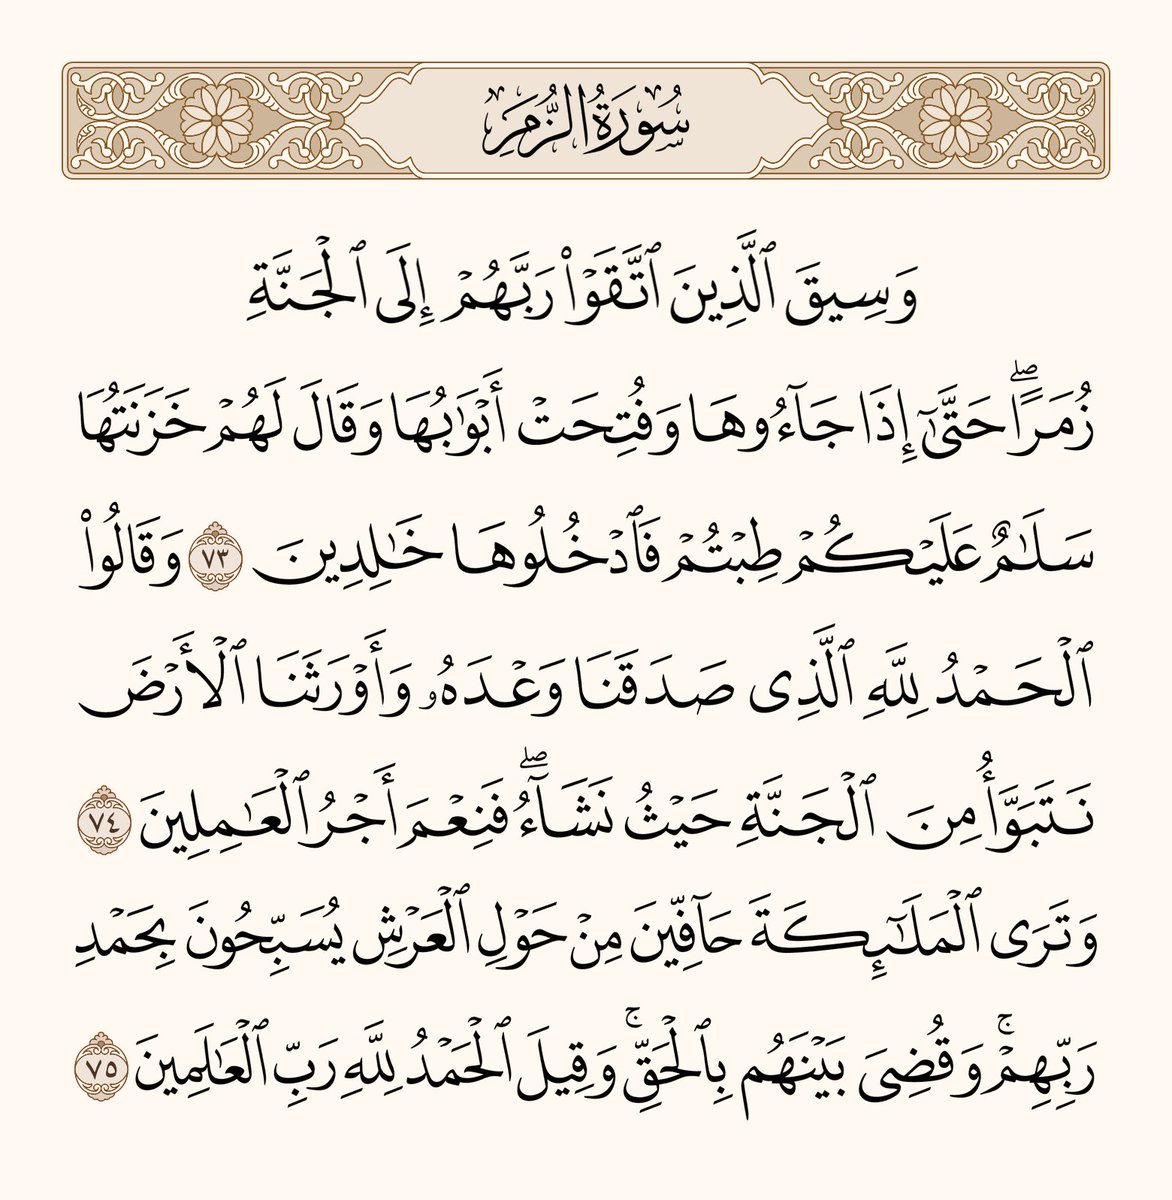 سُورَةُ الزُّمَرِ
وَسِيقَ ٱلَّذِينَ ٱتَّقَوۡاْ رَبَّهُمۡ إِلَى ٱلۡجَنَّةِ
زُمَرًاۖ حَتَّىٰٓ إِذَا جَآءُوهَا وَفُتِحَتۡ أَبۡوَٰبُهَا وَقَالَ لَهُمۡ خَزَنَتُهَا
سَلَٰمٌ عَلَيۡكُمۡ طِبۡتُمۡ فَٱدۡخُلُوهَا خَٰلِدِينَ ٧٣ وَقَالُواْ
ٱلۡحَمۡدُ لِلَّهِ ٱلَّذِى صَدَقَنَا وَعۡدَهُۥ وَأَوۡرَثَنَا ٱلۡأَرۡضَ
نَتَبَوَّأُ مِنَ ٱلۡجَنَّةِ حَيۡثُ نَشَآءُۖ فَنِعۡمَ أَجۡرُ ٱلۡعَٰمِلِينَ ٧٤
وَتَرَى ٱلۡمَلَٰٓئِكَةَ حَآفِّينَ مِنۡ حَوۡلِ ٱلۡعَرۡشِ يُسَبِّحُونَ بِحَمۡدِ
رَبِّهِمۡۚ وَقُضِىَ بَيۡنَهُم بِٱلۡحَقِّۚ وَقِيلَ ٱلۡحَمۡدُ لِلَّهِ رَبِّ ٱلۡعَٰلَمِينَ ٧٥